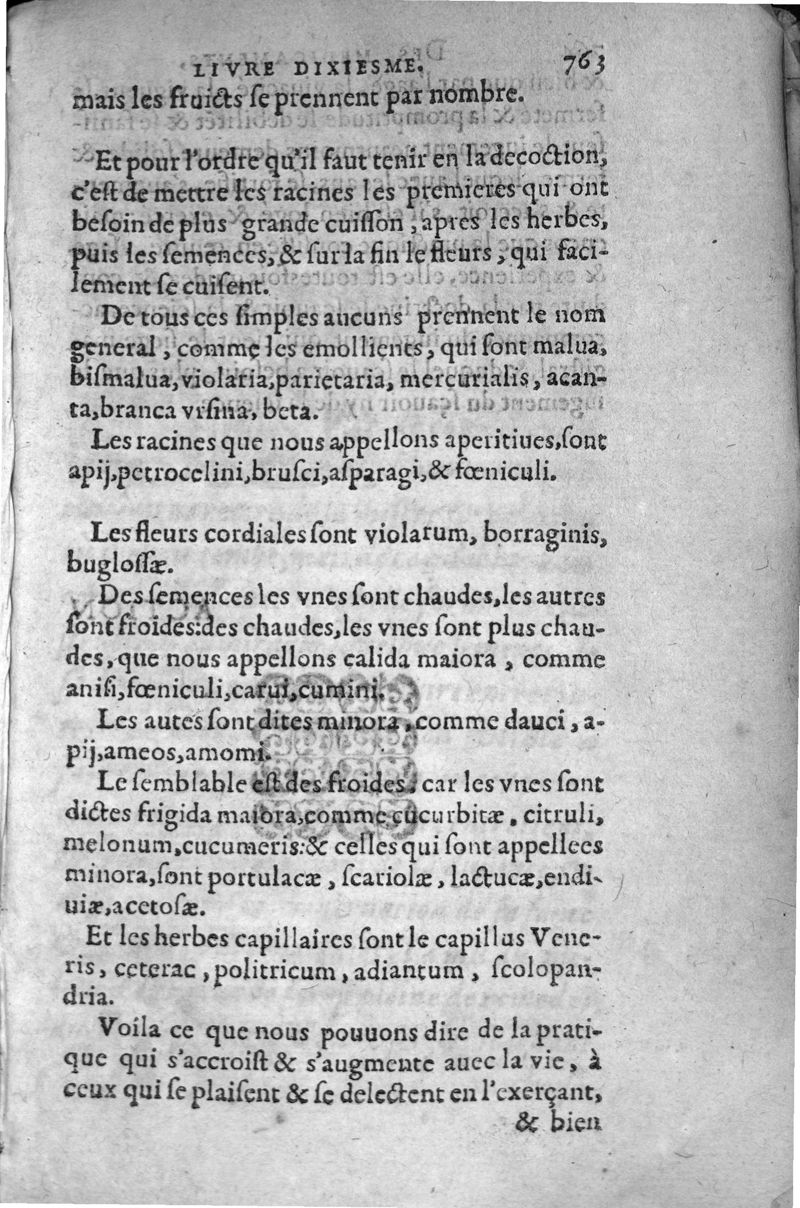 LIVRE DIXIESME. 763
mais les fruicts ſe prennent par nombre.
Et pour l'ordre qu'il faut tenir en la decoction,
c'eſt de mettre les racines les premieres qui ont
beſoin de plus grande cuiſſon, apres les herbes,
puis les ſemences, & ſur la fin le fleurs, qui faci-
lement ſe cuiſent.
De tous ces ſimples aucuns prennent le nom
general, comme les emollients, qui ſont malua,
biſmalua, violaria, parietaria, mercurialis, acan-
ta, branca vrſina, beta.
Les racines que nous appellons aperitiues, ſont
apij, petrocelini, bruſci, aſparagi, & fœniculi.
Les fleurs cordiales ſont violarum, borraginis,
bugloſſæ.
Des ſemences les vnes ſont chaudes, les autres
ſont froides: des chaudes, les vnes ſont plus chau-
des, que nous appellons calida maiora, comme
aniſi, fœniculi, carui, cumini.
Les autes ſont dites minora, comme dauci, a-
pij, ameos, amomi.
Le ſemblable eſt des froides: car les vnes ſont
dictes frigida maiora, comme cucurbitæ, citruli,
melonum, cucumeris: & celles qui ſont appellees
minora, ſont portulacæ, ſcariolæ, lactucæ, endi-
uiæ, acetoſæ.
Et les herbes capillaires ſont le capillus Vene-
ris, ceterac, politricum, adiantum, ſcolopan-
dria.
Voila ce que nous pouuons dire de la prati-
que qui s'accroiſt & s'augmente auec la vie, à
ceux qui ſe plaiſent & ſe delectent en l'exerçant,
& bien